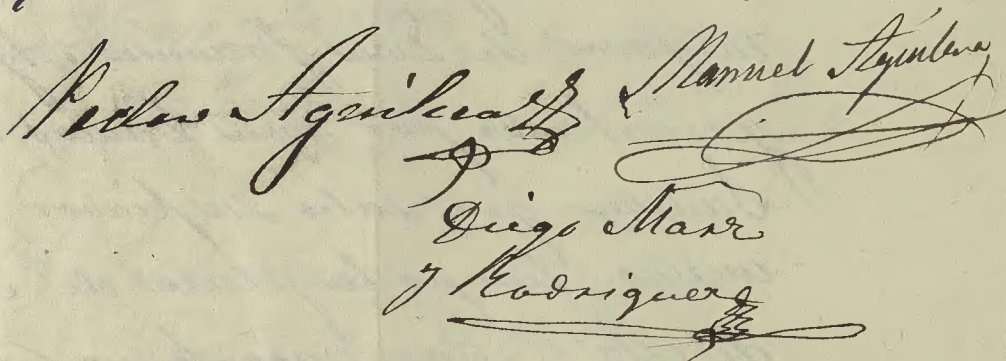 Pedro Aguilera Manuel Aguilera
Diego Marz
y Rodriguez